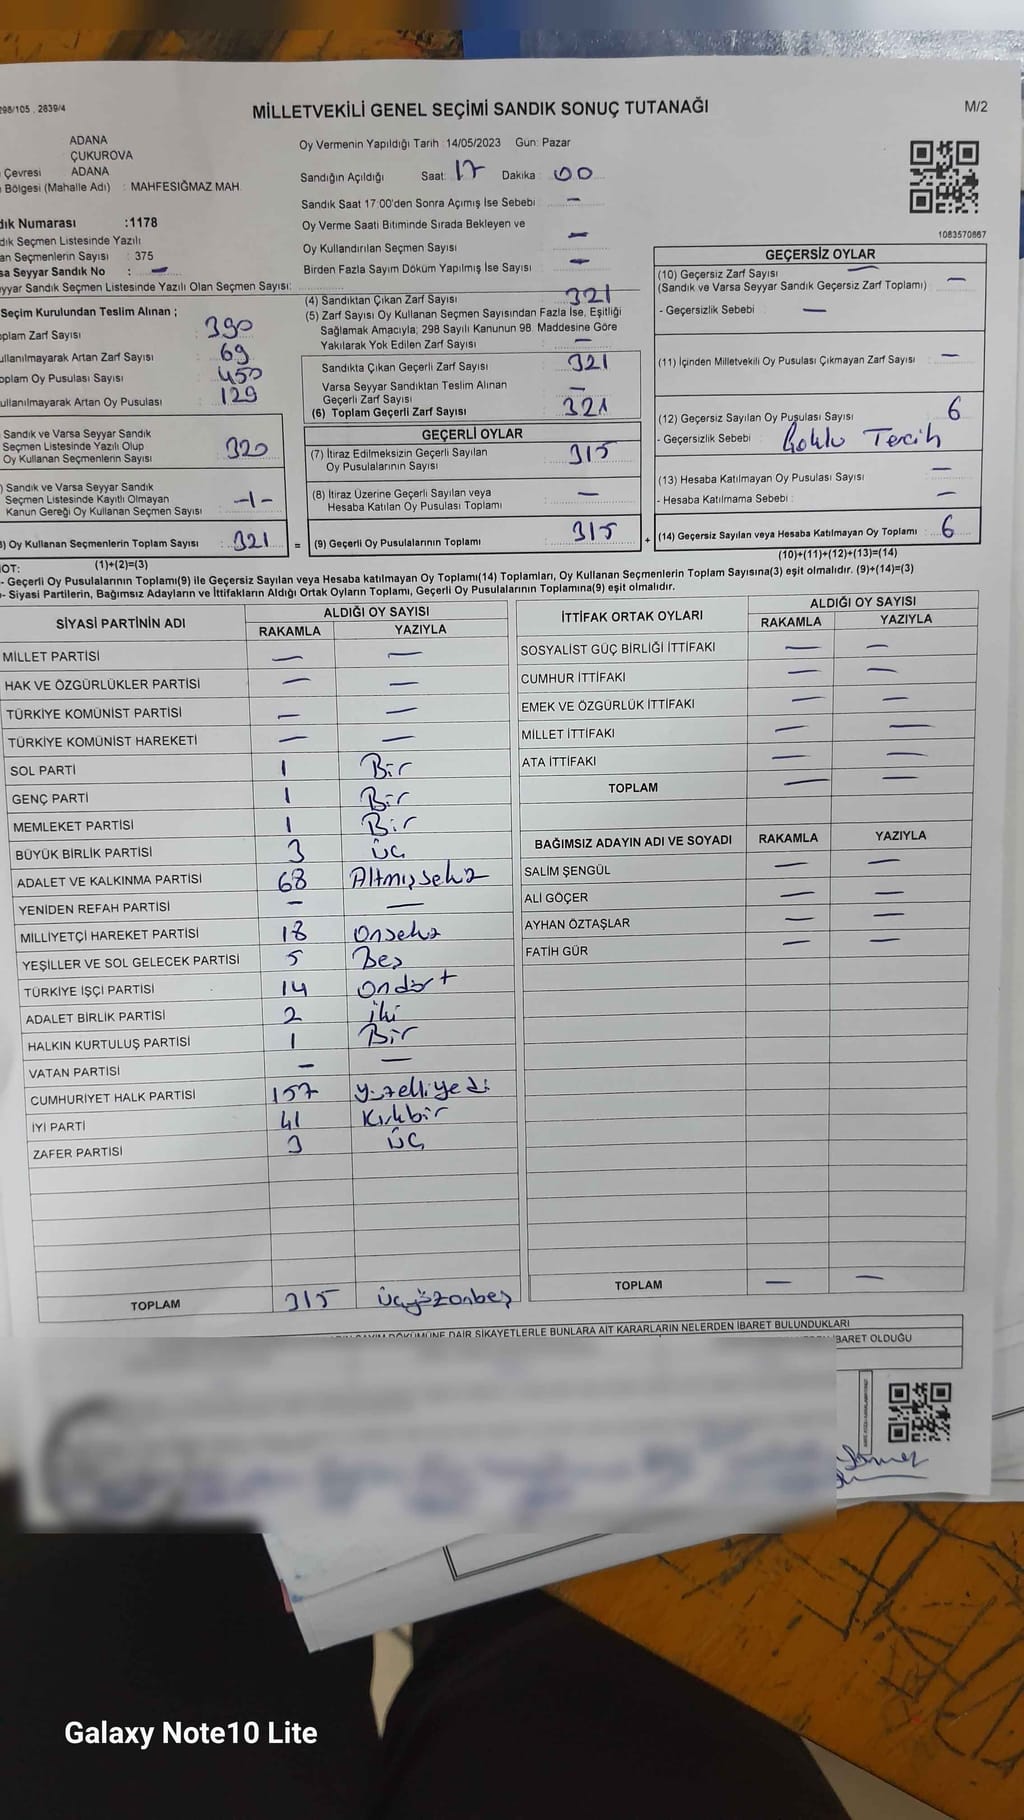 298/105 . 2839/4
MİLLETVEKİLİ GENEL SEÇİMİ SANDIK SONUÇ TUTANAĞI
M/2
ADANA
ÇUKUROVA
Çevresi ADANA
Bölgesi (Mahalle Adı) : MAHFESIĞMAZ MAH.
Numarası :1178
Sandık Seçmen Listesinde Yazılı
Seçmenlerin Sayısı : 375
Seyyar Sandık No : —
Seyyar Sandık Seçmen Listesinde Yazılı Olan Seçmen Sayısı:
Oy Vermenin Yapıldığı Tarih :14/05/2023 Gün: Pazar
Sandığın Açıldığı Saat: 17 Dakika 00
Sandık Saat 17:00'den Sonra Açımış İse Sebebi : —
Oy Verme Saati Bitiminde Sırada Bekleyen ve
Oy Kullandırılan Seçmen Sayısı : —
Birden Fazla Sayım Döküm Yapılmış İse Sayısı : —
1083570667
Seçim Kurulundan Teslim Alınan ;
Toplam Zarf Sayısı : 390
Kullanılmayarak Artan Zarf Sayısı : 69
Toplam Oy Pusulası Sayısı : 450
Kullanılmayarak Artan Oy Pusulası : 129
Sandık ve Varsa Seyyar Sandık
Seçmen Listesinde Yazılı Olup
Oy Kullanan Seçmenlerin Sayısı : 320
Sandık ve Varsa Seyyar Sandık
Seçmen Listesinde Kayıtlı Olmayan
Kanun Gereği Oy Kullanan Seçmen Sayısı : -1-
Oy Kullanan Seçmenlerin Toplam Sayısı : 321
(1)+(2)=(3)
(4) Sandıktan Çıkan Zarf Sayısı : 321
(5) Zarf Sayısı Oy Kullanan Seçmen Sayısından Fazla İse, Eşitliği
Sağlamak Amacıyla; 298 Sayılı Kanunun 98. Maddesine Göre
Yakılarak Yok Edilen Zarf Sayısı : —
Sandıkta Çıkan Geçerli Zarf Sayısı : 321
Varsa Seyyar Sandıktan Teslim Alınan
Geçerli Zarf Sayısı : —
(6) Toplam Geçerli Zarf Sayısı : 321
GEÇERLİ OYLAR
(7) İtiraz Edilmeksizin Geçerli Sayılan
Oy Pusulalarının Sayısı : 315
(8) İtiraz Üzerine Geçerli Sayılan veya
Hesaba Katılan Oy Pusulası Toplamı : —
= (9) Geçerli Oy Pusulalarının Toplamı : 315
GEÇERSİZ OYLAR
(10) Geçersiz Zarf Sayısı : —
(Sandık ve Varsa Seyyar Sandık Geçersiz Zarf Toplamı)
- Geçersizlik Sebebi : —
(11) İçinden Milletvekili Oy Pusulası Çıkmayan Zarf Sayısı : —
(12) Geçersiz Sayılan Oy Pusulası Sayısı : 6
- Geçersizlik Sebebi : Çoklu Tercih
(13) Hesaba Katılmayan Oy Pusulası Sayısı : —
- Hesaba Katılmama Sebebi : —
+ (14) Geçersiz Sayılan veya Hesaba Katılmayan Oy Toplamı : 6
(10)+(11)+(12)+(13)=(14)
NOT:
- Geçerli Oy Pusulalarının Toplamı(9) ile Geçersiz Sayılan veya Hesaba katılmayan Oy Toplamı(14) Toplamları, Oy Kullanan Seçmenlerin Toplam Sayısına(3) eşit olmalıdır. (9)+(14)=(3)
- Siyasi Partilerin, Bağımsız Adayların ve İttifakların Aldığı Ortak Oyların Toplamı, Geçerli Oy Pusulalarının Toplamına(9) eşit olmalıdır.
SİYASİ PARTİNİN ADI ALDIĞI OY SAYISI
RAKAMLA YAZIYLA
MİLLET PARTİSİ — —
HAK VE ÖZGÜRLÜKLER PARTİSİ — —
TÜRKİYE KOMÜNİST PARTİSİ — —
TÜRKİYE KOMÜNİST HAREKETİ — —
SOL PARTİ 1 Bir
GENÇ PARTİ 1 Bir
MEMLEKET PARTİSİ 1 Bir
BÜYÜK BİRLİK PARTİSİ 3 üç
ADALET VE KALKINMA PARTİSİ 68 Altmışsekiz
YENİDEN REFAH PARTİSİ — —
MİLLİYETÇİ HAREKET PARTİSİ 18 Onsekiz
YEŞİLLER VE SOL GELECEK PARTİSİ 5 Beş
TÜRKİYE İŞÇİ PARTİSİ 14 ondört
ADALET BİRLİK PARTİSİ 2 iki
HALKIN KURTULUŞ PARTİSİ 1 Bir
VATAN PARTİSİ — —
CUMHURİYET HALK PARTİSİ 157 yüzelliyedi
İYİ PARTİ 41 Kırkbir
ZAFER PARTİSİ 3 üç
TOPLAM 315 üçyüzonbeş
İTTİFAK ORTAK OYLARI ALDIĞI OY SAYISI
RAKAMLA YAZIYLA
SOSYALİST GÜÇ BİRLİĞİ İTTİFAKI — —
CUMHUR İTTİFAKI — —
EMEK VE ÖZGÜRLÜK İTTİFAKI — —
MİLLET İTTİFAKI — —
ATA İTTİFAKI — —
TOPLAM — —
BAĞIMSIZ ADAYIN ADI VE SOYADI RAKAMLA YAZIYLA
SALİM ŞENGÜL — —
ALİ GÖÇER — —
AYHAN ÖZTAŞLAR — —
FATİH GÜR — —
TOPLAM — —
DÖKÜMÜNE DAİR ŞİKAYETLERLE BUNLARA AİT KARARLARIN NELERDEN İBARET BULUNDUKLARI
İBARET OLDUĞU
Galaxy Note10 Lite